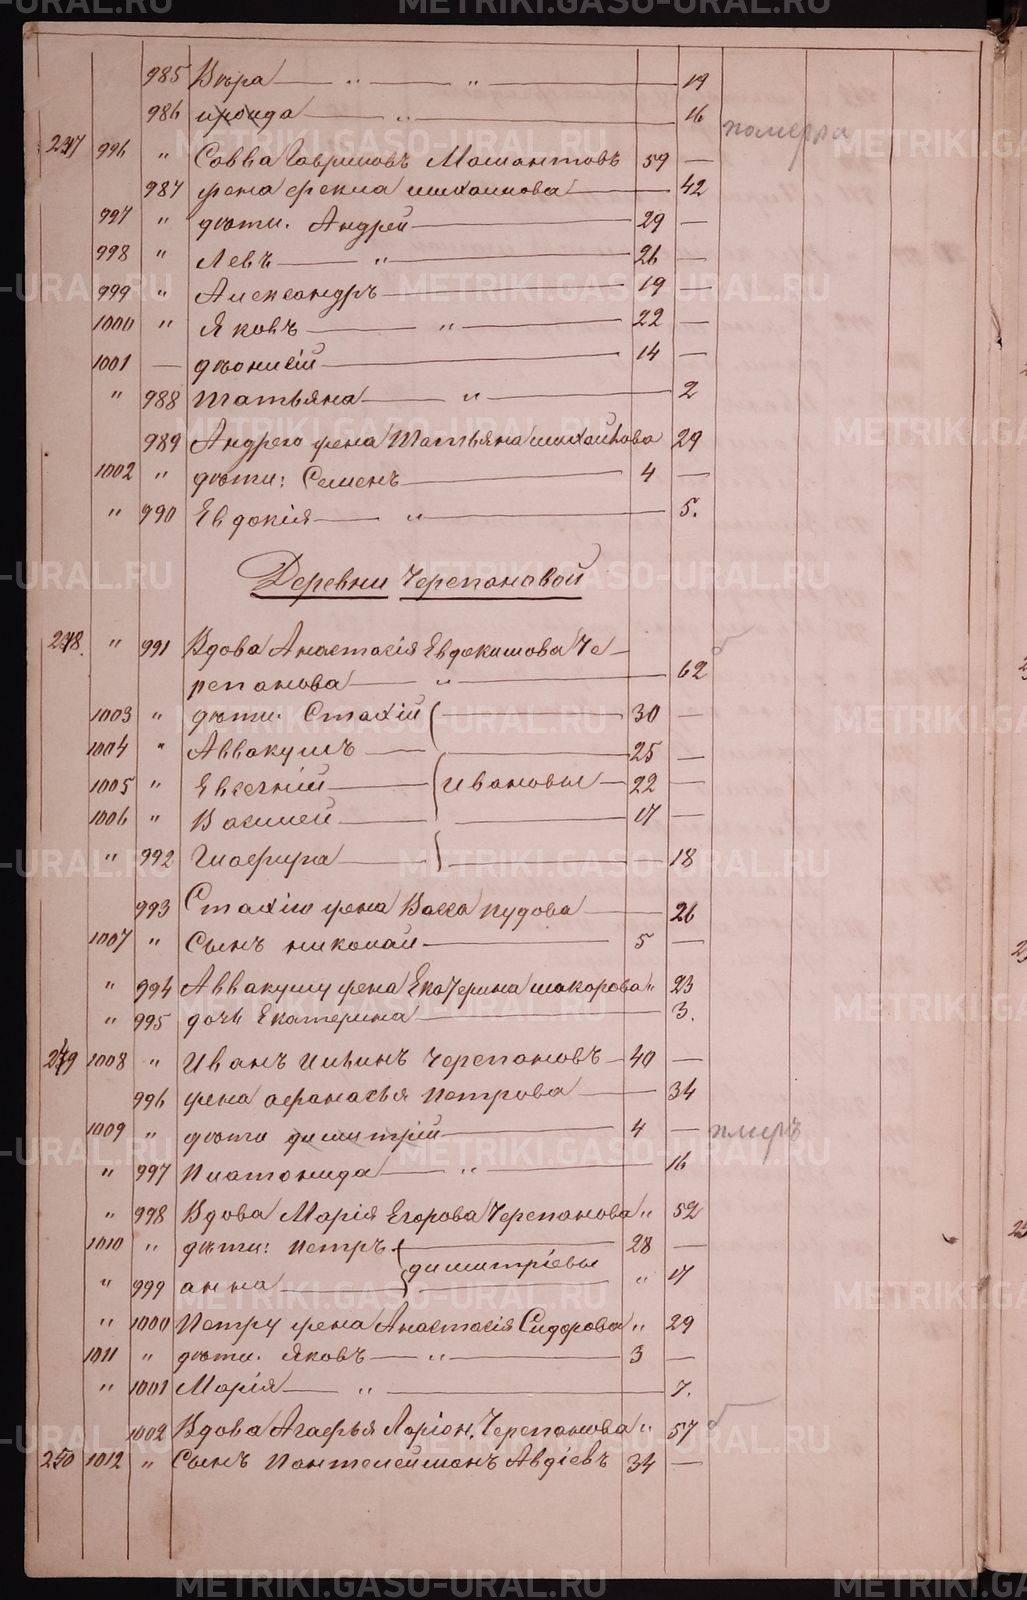 985 Вѣра — „ — „ — 19
986 ироида — „ — 16 померла
247 996 „ Савва Гавриловъ Мамонтовъ 59 —
987 жена Фекла михаилова — 42
997 „ дѣти. Андрей — 29 —
998 „ Левъ — „ — 26 —
999 „ Александръ — 19 —
1000 „ Яковъ — „ — 22 —
1001 — діонисій — 14 —
„ 988 Татьяна — „ — 2
989 Андрею жена Татьяна михайлова 29
1002 „ дѣти: Семенъ — 4 —
„ 990 Евдокія — „ — 5.
Деревни Черепановой
248. „ 991 Вдова Анастасія Евдокимова Че-
репанова — „ — 62
1003 „ дѣти. Стахій — 30 —
1004 „ Аввакумъ — 25 —
1005 „ Евгеній — Ивановы — 22 —
1006 „ Василей — 17 —
„ 992 Глафира — 18
993 Стахію жена Васса Иудова — 26
1007 „ Сынъ николай — 5 —
„ 994 Аввакуму жена Екатерина макарова „ 23
„ 995 дочь Екатерина — 3.
249 1008 „ Иванъ Ильинъ Черепановъ — 40 —
996 жена афанасья Петрова — 34
1009 „ дѣти димитрій — 4 — умеръ
„ 997 Платонида — „ — 16
„ 998 Вдова Марія Егорова Черепанова „ 52
1010 „ дѣти: Петръ — 28 —
димитріевы
„ 999 анна — „ 17
„ 1000 Петру жена Анастасія Сидорова „ 29
1011 „ дѣти. Яковъ — „ — 3 —
„ 1001 Марія — „ — 7.
1002 Вдова Агафья Ларіон. Черепанова „ 57
250 1012 „ Сынъ Пантелеймонъ Авдіевъ 34 —
METRIKI.GASO-URAL.RU